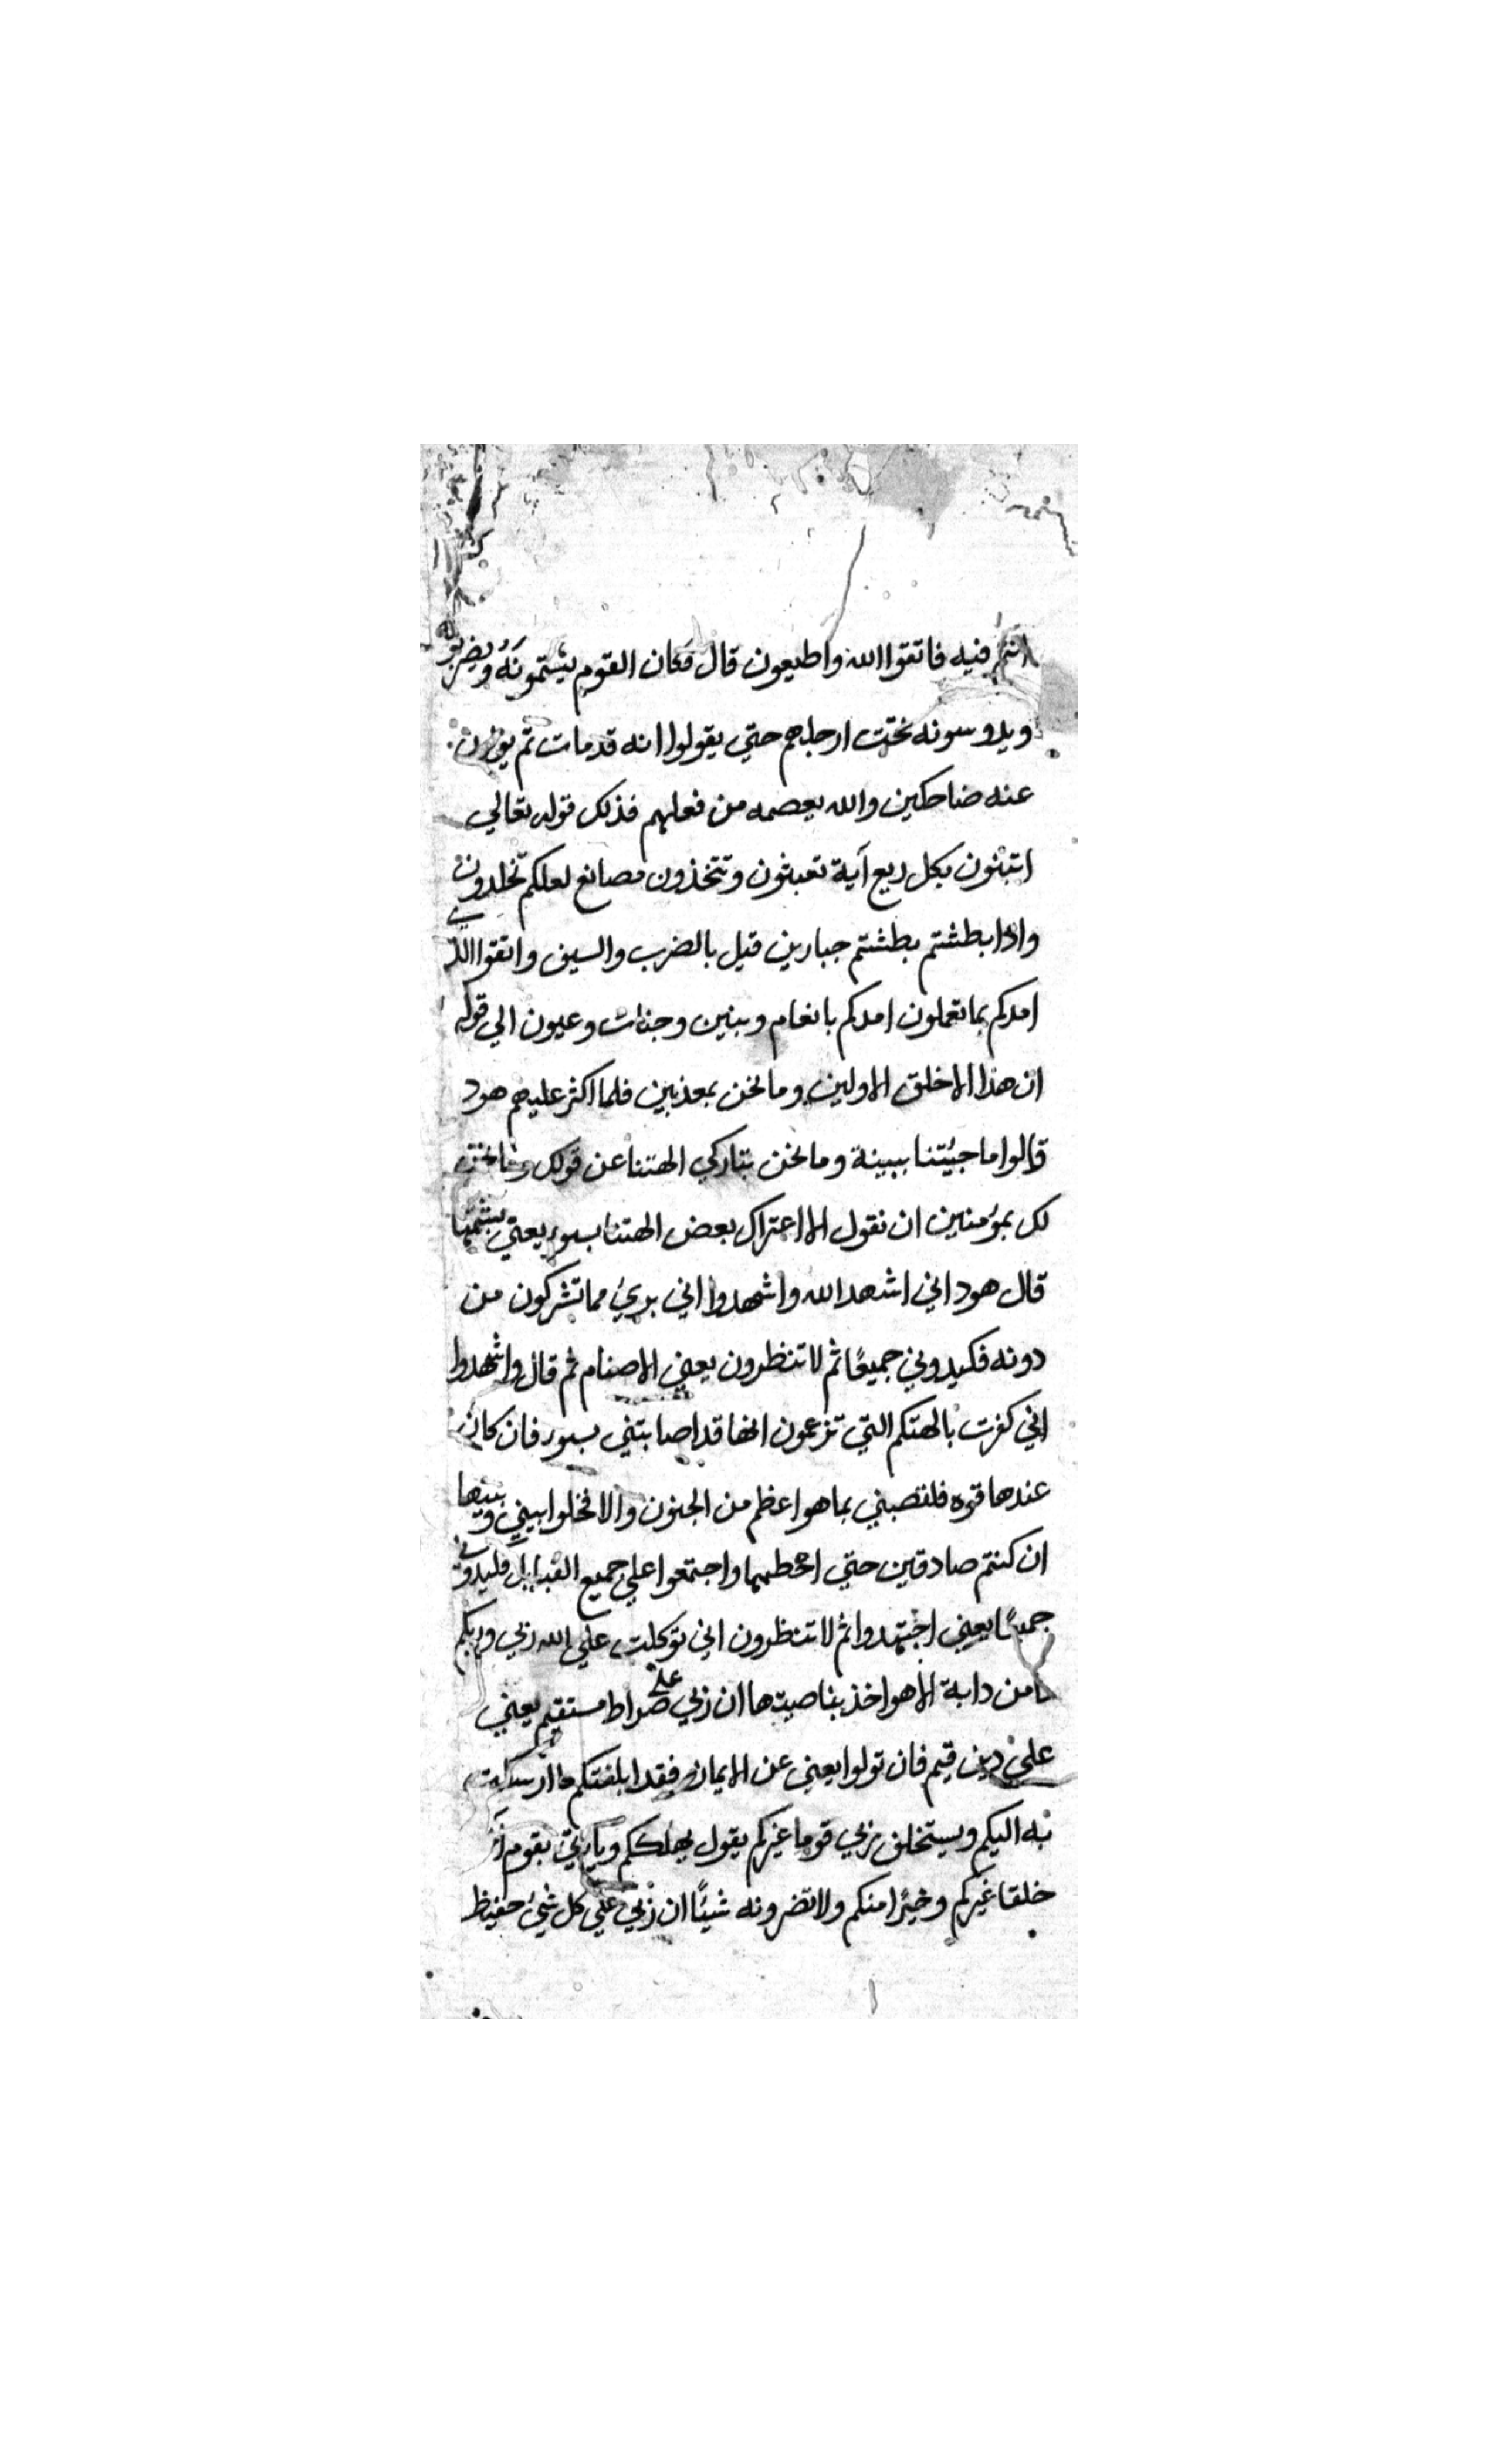 انتم فيه فاتقوا الله واطيعون قال فكان القوم يشتمونَهُ ويضربونه
ويدوسونه تحت ارجلهم حتي يقولوا انه قد مات ثم يولون
عنه ضاحكين والله يعصمه من فعلهم فذلك قوله تعالي
اتبنون بكل ريع آية تعبثون وتتخذون مصانع لعلكم تخلدون
واذا بطشتم بطشتم جبارين قيل بالضرب والسيف واتقوا الذي
امدكم بما تعملون امدكم بانعام وبنين وجنات وعيون الي قوله
ان هذا الا خلق الاولين وما نحن بمعذبين فلما اكثر عليهم هود
قالوا ما جيئتنا ببينة وما نحن بتاركي الهتنا عن قولك وما نحن
لك بموٴمنين ان نقول الا اعتراك بعض الهتنا بسوء يعني بشتمها
قال هود اني اشهد الله واشهدوا اني بريء مما تشركون من
دونه فكيدوني جميعًا ثم لا تنظرون يعني الاصنام ثم قال واشهدوا
اني كفرت بالهتكم التي تزعمون انها قد اصابتني بسوء فان كان
عندها قوه فلتصبني بما هو اعظم من الجنون والا فخلوا بيني وبينها
ان كنتم صادقين حتي احطمها واجتمعوا علي جميع القبايل فكيدوني
جميعًا يعني اجتهدوا ثم لا تنظرون اني توكلت علي الله ربي وربكم
ما من دابة الا هو اخذ بناصيتها ان ربي علي صراط مستقيم يعني
علي دين قيم فان تولوا يعني عن الايمان فقد ابلغتكم ما ارسلت
به اليكم ويستخلف ربي قوما غيركم يقول يهلككم وياتي بقوم
خلقا غيركم وخيرًا منكم ولا تضرونه شيئًا ان ربي علي كل شيء حفيظ